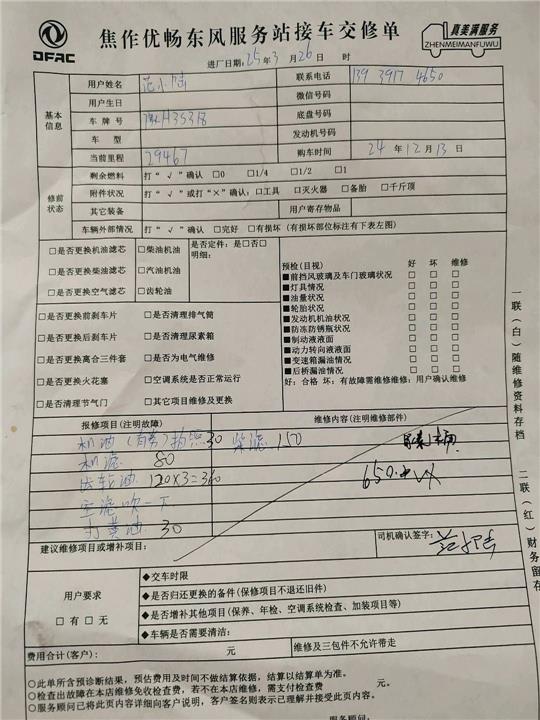 DFAC
焦作优畅东风服务站接车交修单
真美满服务
ZHENMEIMANFUWU
进厂日期:25年3月26日 时
基本信息
用户姓名
联系电话 139 3917 4650
用户生日
微信号码
车牌号 豫H35318
底盘号码
车型
发动机号码
当前里程 29467
购车时间 24年12月13日
修前状态
剩余燃料 打“√”确认 □0 □1/4 □1/2 □1
附件状况 打“√”或打“×”确认:□工具 □灭火器 □备胎 □千斤顶
其它装备
用户寄存物品
车辆外部情况 打“√”确认 □完好 □有损坏(有损坏部位标注有下表左图)
□是否更换机油滤芯 □柴油机油
□是否更换柴油滤芯 □汽油机油
□是否更换空气滤芯 □齿轮油
是否定件:是□否□
明细:
□是否更换前刹车片 □是否清理排气筒
□是否更换后刹车片 □是否清理尿素箱
□是否更换离合三件套 □是否为电气维修
□是否更换火花塞 □空调系统是否正常运行
□是否清理节气门 □其它项目维修及更换
预检(目视) 好 坏 维修
■前挡风玻璃及车门玻璃状况 □ □ □
■灯具情况 □ □ □
■油量状况 □ □ □
■轮胎状况 □ □ □
■发动机机油状况 □ □ □
■防冻防锈瓶状况 □ □ □
■制动液液面 □ □ □
■动力转向液液面 □ □ □
■变速箱漏油情况 □ □ □
■后桥漏油情况 □ □ □
好:合格 坏:有故障需维修维修:用户确认维修
报修项目(注明故障)
维修内容(注明维修部件)
机油 30 柴滤 150
机滤 80
齿轮油 120×3=360
空滤吹一下
打黄油 30
650
建议维修项目或增补项目:
司机确认签字:
用户要求
□有 □无
◆交车时限
◆是否归还更换的备件(保修项目不退还旧件)
◆是否增补其他项目(保养、年检、空调系统检查、加装项目等)
◆车辆是否需要清洁:
费用合计(客户): 元
维修及三包件不允许带走
○此单所含预诊断结果,预估费用及时间不做结算依据,结算以结算单为准。
○检查出故障在本店维修免收检查费,若不在本店维修,需支付检查费 元。
○服务顾问已将此页内容详细向客户说明,客户签名则表示已理解并接受此页内容。
服务顾问:
一联(白)随维修资料存档
二联(红)财务留存